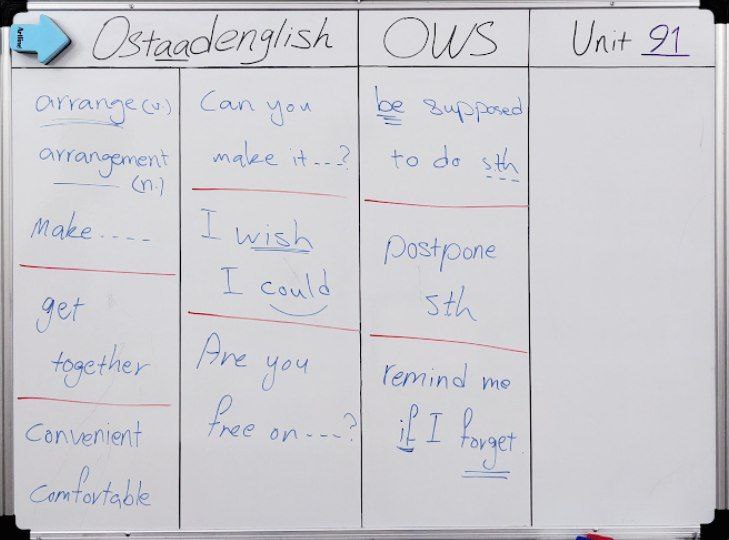 Ostaadenglish
OWS
Unit 91
arrange (v.)
arrangement
(n.)
Make ....
get
together
Convenient
Comfortable
Can you
make it ...?
I wish
I could
Are you
free on ....?
be supposed
to do sth
postpone
sth
remind me
if I forget